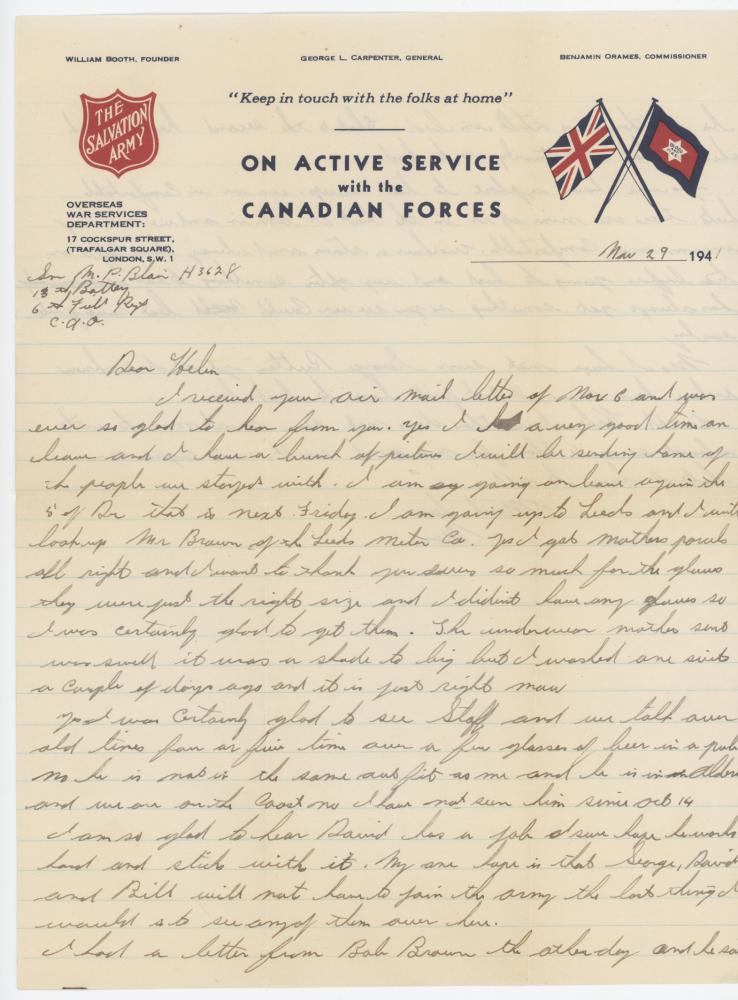 WILLIAM BOOTH, FOUNDER
GEORGE L. CARPENTER, GENERAL
BENJAMIN ORAMES, COMMISSIONER
THE
SALVATION
ARMY
"Keep in touch with the folks at home"
ON ACTIVE SERVICE
with the
CANADIAN FORCES
OVERSEAS
WAR SERVICES
DEPARTMENT:
17 COCKSPUR STREET,
(TRAFALGAR SQUARE),
LONDON, S.W. 1
Nov 29 1941
M. P. Blair H3628
13th Battery
6th Field Regt
C.A.O.
Dear Helen
I received your air mail letter of Nov 6 and was
ever so glad to hear from you. Yes I had a very good time on
leave and I have a bunch of pictures I will be sending home of
the people we stayed with. I am going on leave again the
5 of De that is next Friday. I am going up to Leeds and I will
look up Mr Brown of the Leeds Meter Co. Yes I got mothers parcels
all right and I want to thank you so much for the gloves
they were just the right size and I didint have any gloves so
I was certainly glad to get them. The underwear mother sent
was swell it was a shade to big but I washed one suit
a couple of days ago and it is just right now
Yes I was certainly glad to see Staff and we talk over
old times four or five time over a few glasses of beer in a pub
no he is not in the same outfit as me and he is in
and we are on the Coast no I have not seen him since Oct 14
I am so glad to hear David has a job I sure hope he works
hard and sticks with it. My one hope is that George, David
and Bill will not have to join the army the last thing I
would is to see any of them over here.
I had a letter from Bob Brown the other day and he